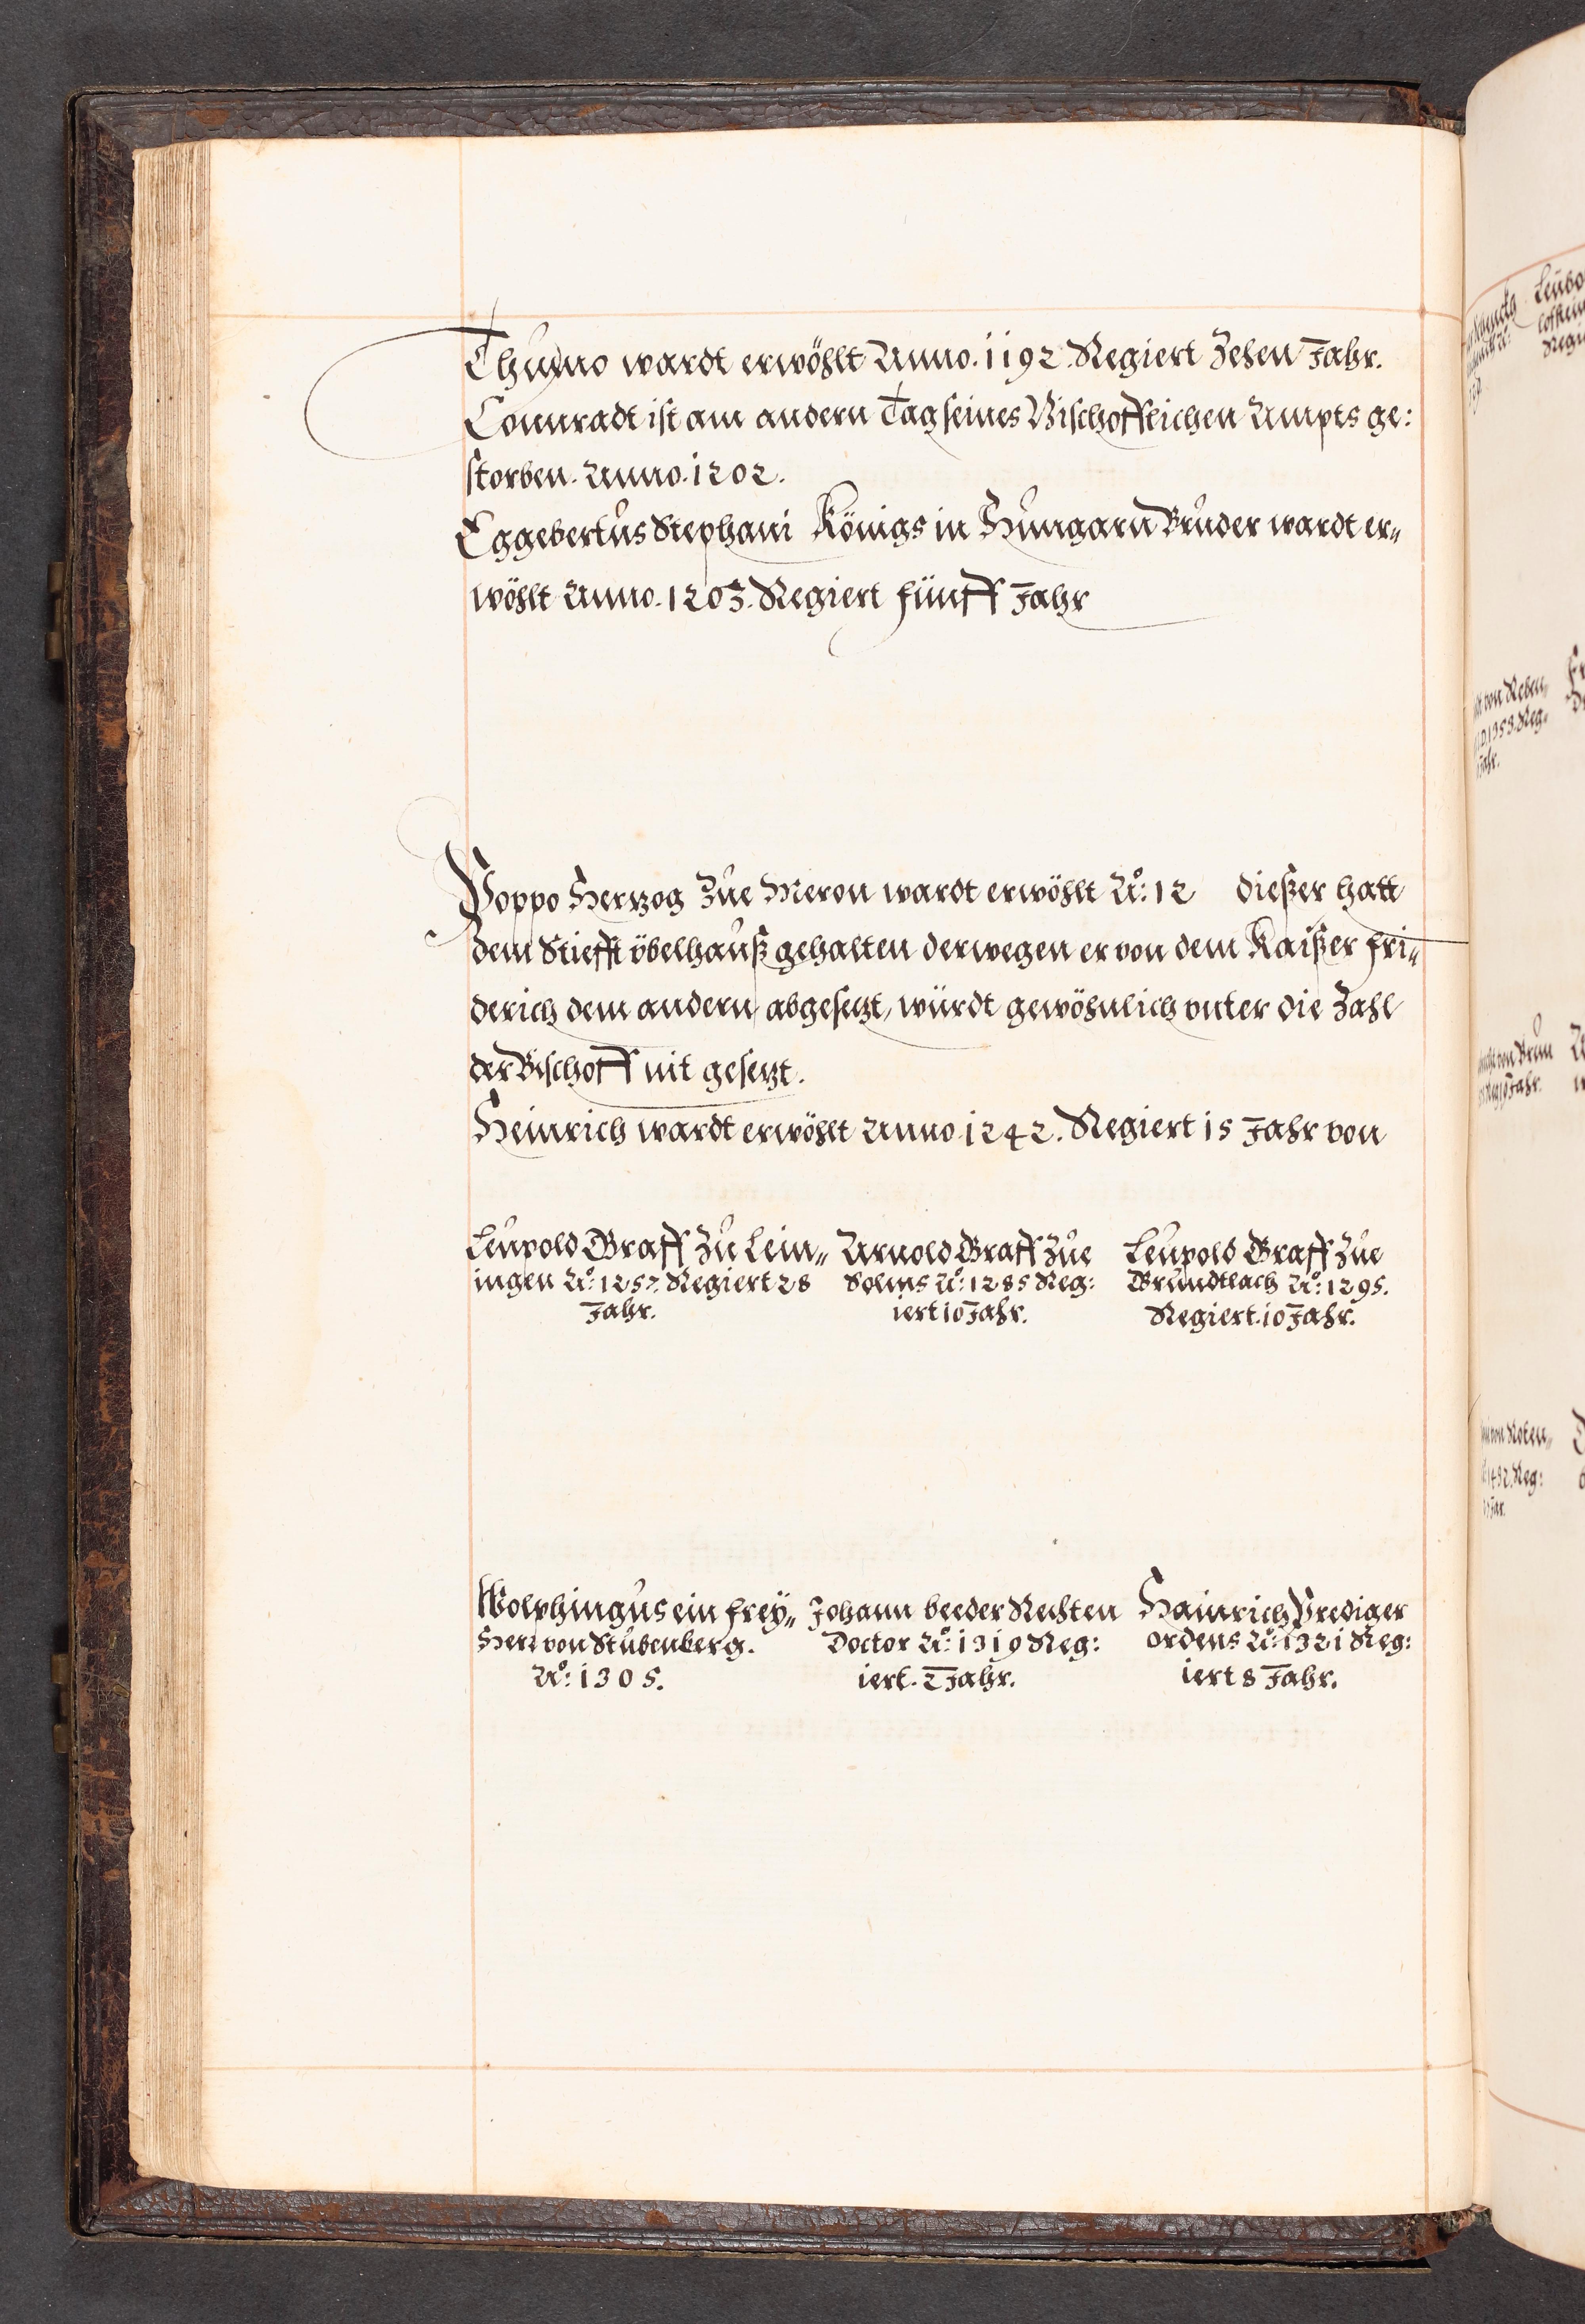 Thumo wardt erwöhlt Anno. 1192. Regiert Zehen Jahr.
Connradt ist am andern Tag seines Bischofflichen Ampts ge:
storben. Anno. 1202.
Eggebertus Stephani Königs in Hungarn Bruder wardt er„
wöhlt Anno. 1203. Regiert fünff Jahr
Poppo Hertzog Zue Meron wardt erwöhlt Aō: 12 dießer hatt
dem Stiefft übelhauß gehalten derwegen er von dem Kaißer fri„
derich dem andern abgesetzt, würdt gewöhnlich vnter die Zahl
der Bischoff nit gesetzt.
Heinrich wardt erwöhlt Anno 1242. Regiert 15 Jahr von
Leupold Graff Zu Lein„
ingen Aō: 1257. Regiert 28
Jahr.
Arnold Graff Zue
Solms Aō: 1285 Reg:
iert 10 Jahr.
Leupold Graff Zue
Grundtlach Aō: 1295.
Regiert. 10 Jahr.
Wolphingus ein frey„
Herr von Stubenberg.
Aō: 1305.
Johann beeder Rechten
Doctor Aō: 1319 Reg:
iert. 2 Jahr.
Hainrich Prediger
ordens Aō: 1321 Reg:
iert 8 Jahr.
von Reben„
1353. Reg:
Jahr.
von Brun
Jahr.
von Roten„
1432. Reg: